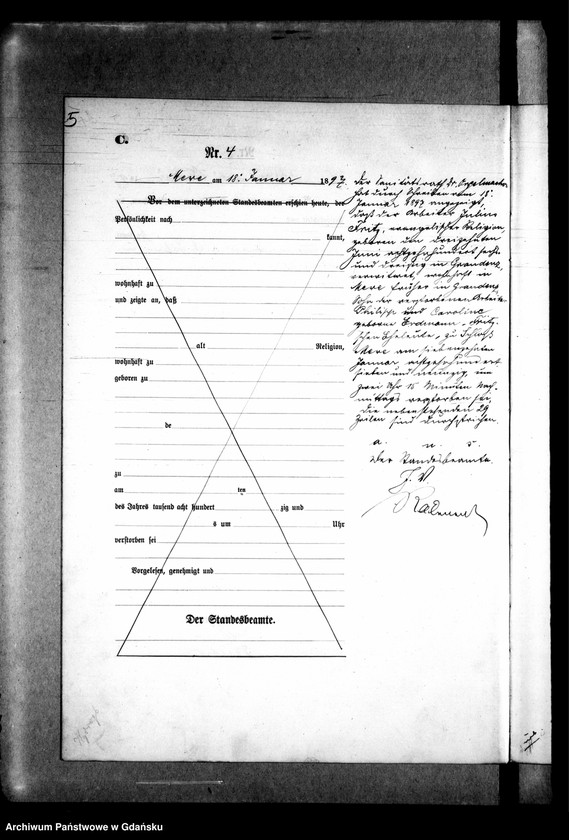 5
C.
Nr. 4
Mewe am 18. Januar 1897
Vor dem unterzeichneten Standesbeamten erschien heute, der
Persönlichkeit nach
kannt,
wohnhaft zu
und zeigte an, daß
alt Religion,
wohnhaft zu
geboren zu
de
zu
am ten
des Jahres tausend acht hundert zig und
s um Uhr
verstorben sei
Vorgelesen, genehmigt und
Der Standesbeamte.
Der Sanitätsrath Dr.
hat durch Schreiben vom 18.
Januar 1897 angezeigt,
daß der Arbeiter Julius
Fritz, evangelischer Religion,
geboren den dreizehnten
Juni achtzehnhundert sechs
und dreizig in Graudenz,
verwitwet, wohnhaft in
Mewe früher in Graudenz
Sohn der verstorbenen Arbeiter
Philipp und Caroline
geborene Erdmann, Fritz-
schen Eheleute, zu Schloß
Mewe am siebzehnten
Januar achtzehnhundert
sieben und neunzig, um
zwei Uhr 15 Minuten Nach-
mittags verstorben sei.
Die nebenstehenden 29
Zeilen sind durchstrichen.
a. u. s.
Der Standesbeamte.
J. V.
Archiwum Państwowe w Gdańsku